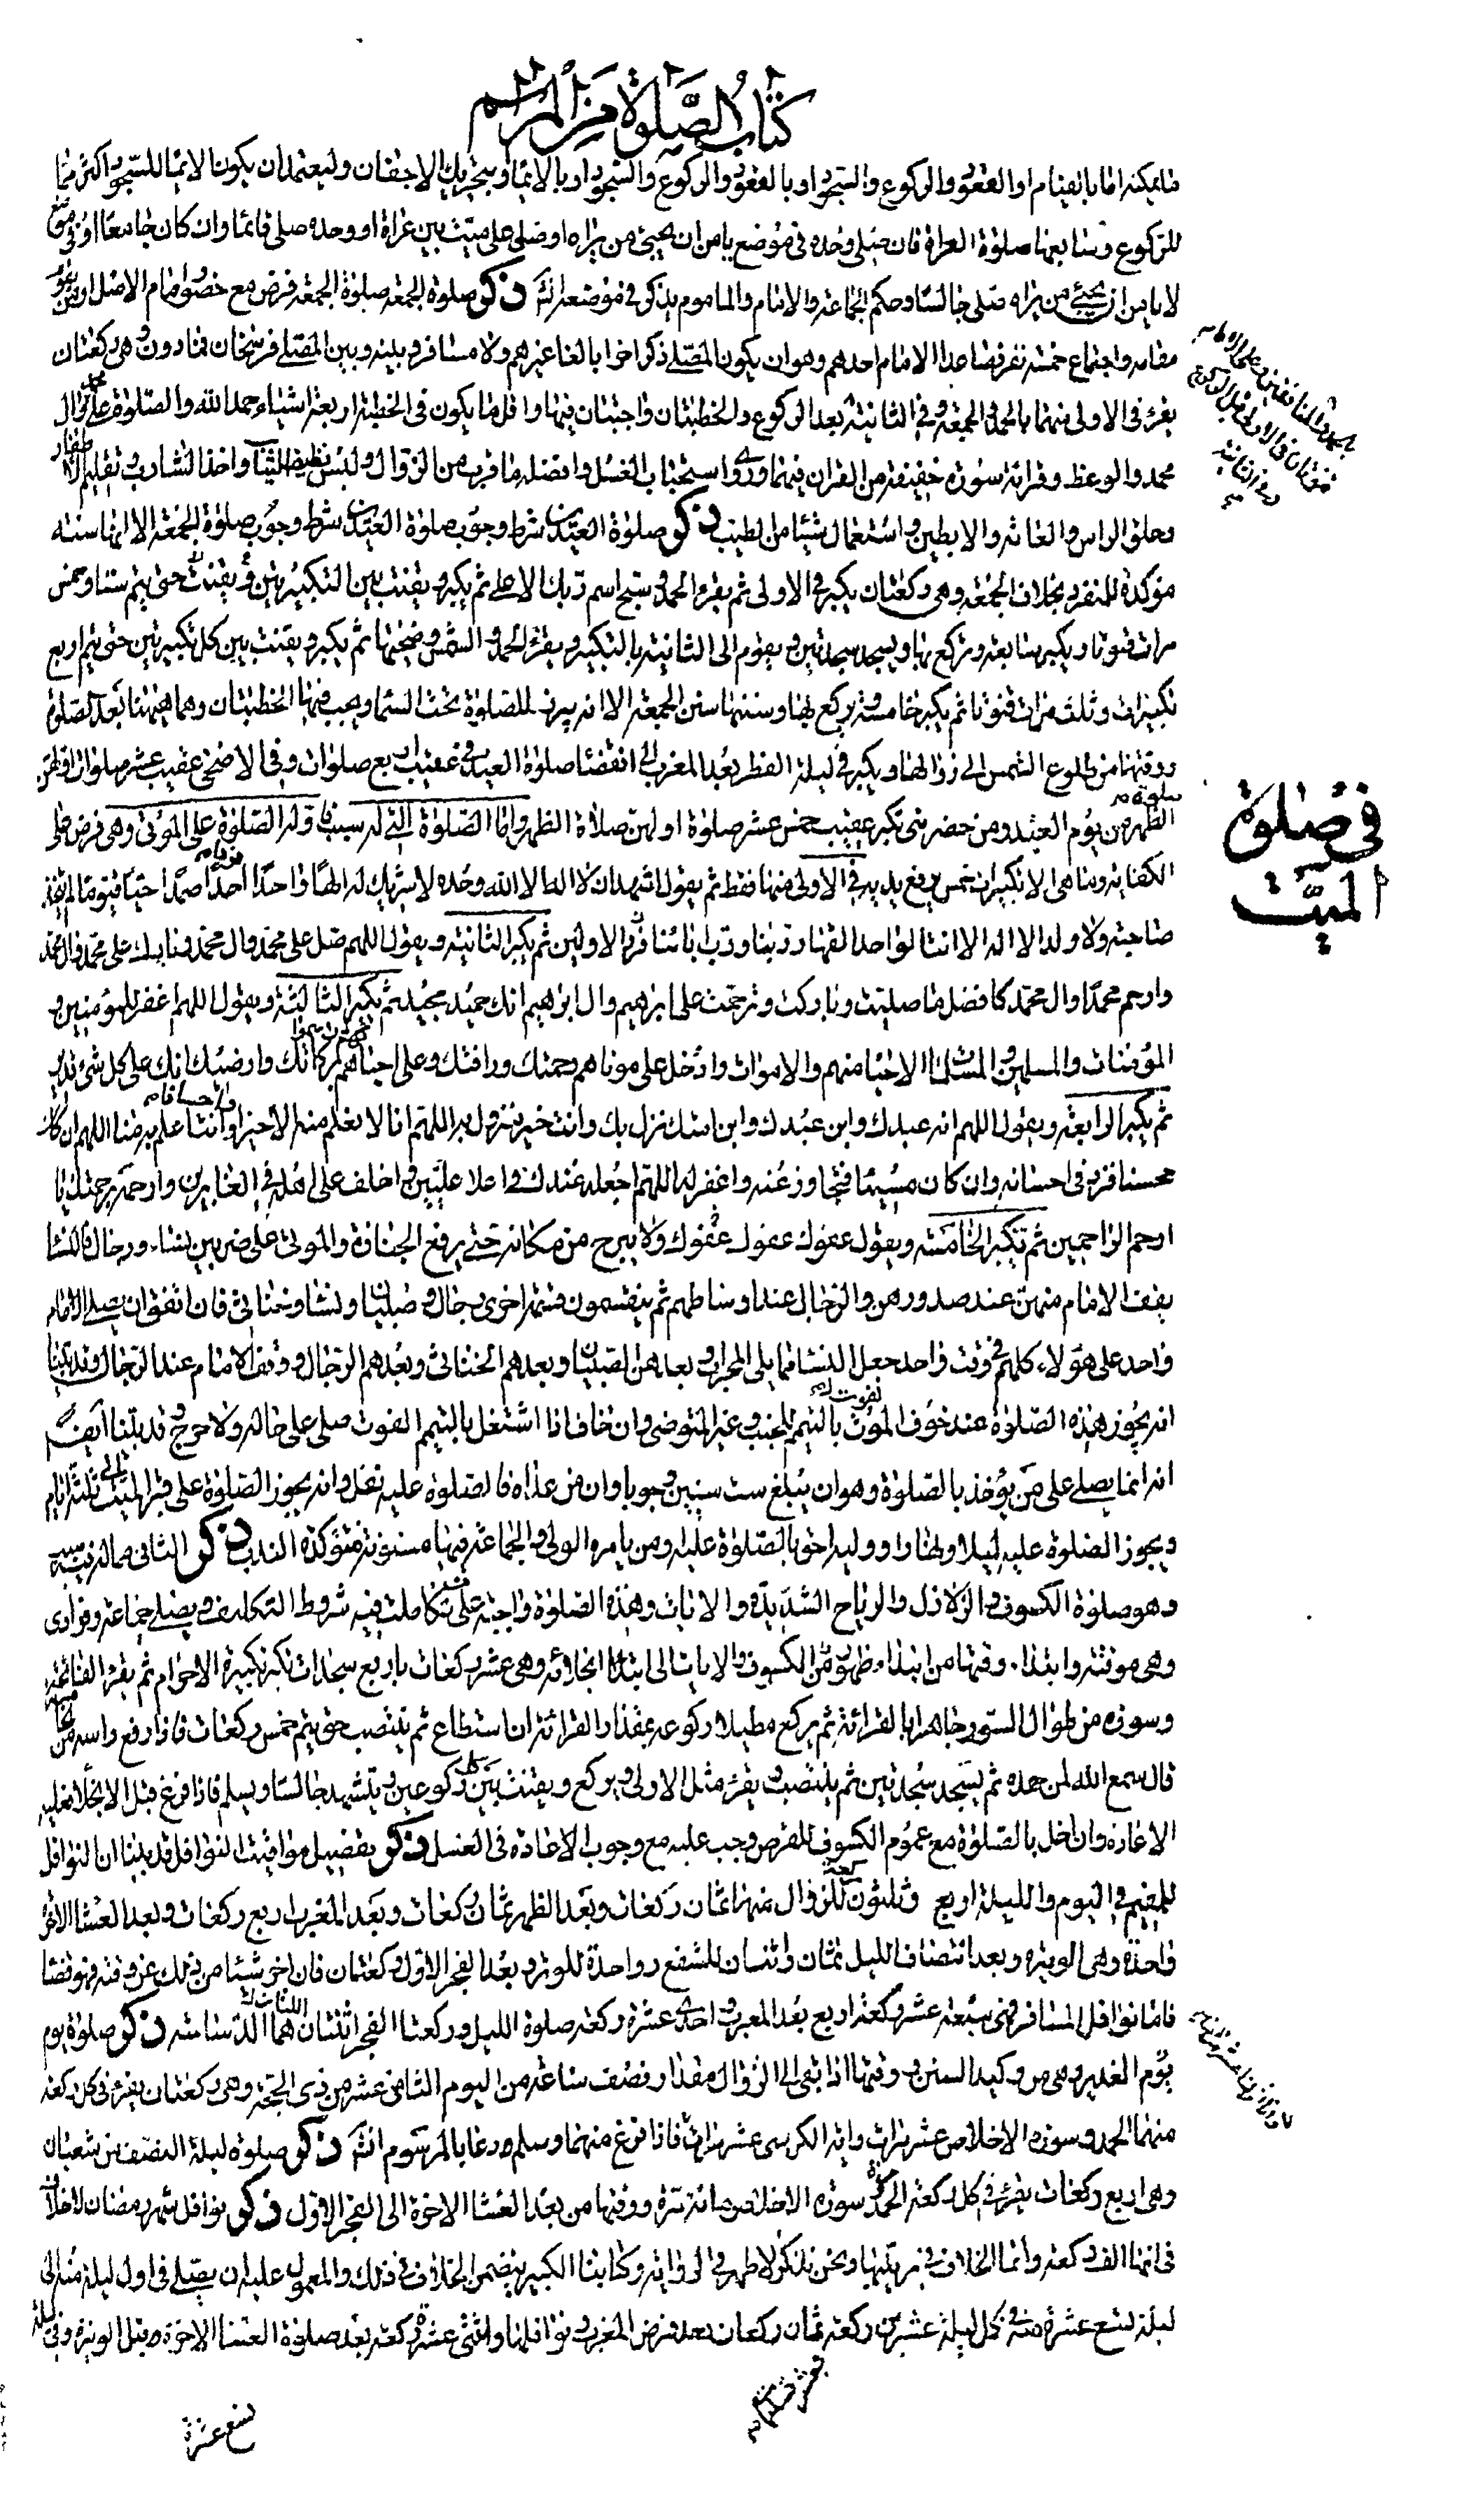 كتاب الصلوة من المراسم
ما يمكنه اما بالقيام او القعود والركوع والسجود او بالقعود والركوع والسجود او بالايماء وبتحريك الاجفان وليعتمد ان يكون الايماء للسجود اكثر مما
للركوع وما يتبعها صلوة العراة فان صلى وحده فى موضع يامن ان يجيئ من يراه او صلى على ميت بين عراة او وحده صلى قائما وان كان جامعا او فى موضع
لا يامن ان يجيئ من يراه صلى جالسا وحكم الجماعة والامام والماموم يذكر فى موضعه انش ذكر صلوة الجمعة صلوة الجمعة فرض مع حضور امام الاصل او من يقوم
مقامه واجتماع خمسة نفر فصاعدا الامام احدهم وهو ان يكون المصلى ذكرا حرا بالغا غير هم ولا مسافر وبينه وبين المصلى فرسخان فما دون وهى ركعتان
يقرء فى الاولى منهما بالحمد والجمعة وفى الثانية بعد الركوع والخطبتان واجبتان فيها واقل ما يكون فى الخطبة اربعة اشياء حمد الله والصلوة على محمد وال
محمد والوعظ وقرائة سورة خفيفة من القران فيهما وروى استحباب الغسل وافضله ما قرب من الزوال ولبس نظيف الثياب واخذ الشارب وتقليم الاظفار
وحلق الراس والعانة والابطين واستعمال شيئا من الطيب ذكر صلوة العيدين شرط وجوب صلوة العيدين شرط وجوب صلوة الجمعة الا انها سنة
مؤكدة للمنفرد بخلاف الجمعة وهى ركعتان يكبر فى الاولى ثم يقرء الحمد وسبح اسم ربك الاعلى ثم يكبر ويقنت بين التكبيرتين ويقنت حتى يتم ستا وخمس
مرات قنوتا ويكبر سابعة ويركع بها ويسجد سجدتين ويقوم الى الثانية بالتكبير ويقرء الحمد والشمس وضحيها ثم يكبر ويقنت بين كل تكبيرتين حتى يتم اربع
تكبيرات وثلث مرات قنوتا ثم يكبر خامسة يركع بها وسننها سنن الجمعة الا انه يبرز للصلوة تحت السماء ويجب فيها الخطبتان وهما هيهنا بعد الصلوة
ووقتها من طلوع الشمس الى زوالها ويكبر فى ليلة الفطر بعد المغرب الى انقضاء صلوة العيد فى عقيب اربع صلوات وفى الاضحى عقيب عشر صلوات اولهن
صلوة
الظهر من يوم العيد ومن حضر منى يكبر عقيب خمس عشر صلوة اولهن صلاة الظهر واما الصلوة التى لها سبب فاوله الصلوة على الموتى وهى فرض على
فى صلوة
الميت
الكفاية وما هى الا تكبيرات خمس يرفع يديه فى الاولى منها فقط ثم يقول اشهد ان لا اله الا الله وحده لا شريك له الها واحدا احدا صمدا حيا قيوما لم يتخذ
صاحبة ولا ولدا لا اله الا انت الواحد القهار ربنا ورب ابائنا الاولين ثم يكبر الثانية ويقول اللهم صل على محمد وال محمد وبارك على محمد وال محمد
وارحم محمدا وال محمد كافضل ما صليت وباركت وترحمت على ابرهيم وال ابرهيم انك حميد مجيد ثم يكبر الثالثة ويقول اللهم اغفر للمؤمنين و
المؤمنات والمسلمين والمسلمات الاحياء منهم والاموات وادخل على موتاهم رحمتك ورافتك وعلى احياهم بركاتك انك على كل شئ قدير
ثم يكبر الرابعة ويقول اللهم انه عبدك وابن عبدك وابن امتك نزل بك وانت خير منزول به اللهم انا لا نعلم منه الا خيرا وانت اعلم به منا اللهم ان كان
محسنا فزد فى احسانه وان كان مسيئا فتجاوز عنه واغفر له اللهم اجعله عندك فى اعلا عليين واخلف على اهله فى الغابرين وارحمه برحمتك يا
ارحم الراحمين ثم تكبر الخامسة ويقول عفوك عفوك عفوك ولا يبرح من مكانه حتى يرفع الجنازة والموتى على ضربين نساء ورجال فالنساء
يقف الامام منهن عند صدورهن والرجال عند اوساطهم ثم ينقسمون قسمة اخرى رجال وصبيان ونساء وخناثى فان اتفق ان يصلى الامام
واحد على هؤلاء كلهم فى وقت واحد جعل النساء مما يلى المحراب وبعدهن الصبيان وبعدهم الخناثى وبعدهم الرجال ووقف الامام عند الرجال وقد بينا
انه يجوز هذه الصلوة عند خوف الفوت بالتيمم للجنب وغير المتوضى وان خاف اذا اشتغل بالتيمم الفوت صلى على حاله ولا حرج وقد بينا ايضا
انه انما يصلى على من يؤخذ بالصلوة وهو ان يبلغ ست سنين وجوبا وان من عداه فالصلوة عليه نفل وانه يجوز الصلوة على قبر الميت الى ثلثة ايام
ويجوز الصلوة عليه ليلا ونهارا ووليه احق بالصلوة عليه ومن يامره الولى والجماعة فيها مسنونة مؤكدة الندب ذكر الثانى مما له سبب
وهو صلوة الكسوف والزلازل والرياح الشديدة والايات وهذه الصلوة واجبة على من تكاملت فيه شروط التكليف ويصلى جماعة وفرادى
وهى موقتة وابتداء وقتها من ابتداء ظهور الكسوف والايات الى ابتداء انجلائه وهى عشر ركعات باربع سجدات تكبر تكبيرة الاحرام ثم يقرء الفاتحة
وسورة من طوال السور جاهرا بالقرائة ثم يركع مطيلا ركوعه بمقدار القرائة ان استطاع ثم ينتصب حتى يتم خمس ركعات فاذا رفع راسه من الخامسة
قال سمع الله لمن حمده ثم يسجد سجدتين ثم ينتصب ويقرء مثل الاولى ويركع ويقنت بين كل ركوعين ويتشهد جالسا ويسلم فاذا فرغ قبل الانجلاء فعليه
الاعادة وان اخل بالصلوة مع عموم الكسوف للقرص وجب عليه مع وجوب الاعادة فى الغسل ذكر تفصيل مواقيت النوافل قد بينا ان النوافل
للمقيم فى اليوم والليلة اربع وثلثون ركعة للزوال منها ثمان ركعات وبعد الظهر ثمان ركعات وبعد المغرب اربع ركعات وبعد العشاء الاخرة
واحدة وهى الوتيرة وبعد انتصاف الليل ثمان واثنتان للشفع وواحدة للوتر وبعد الفجر الاول ركعتان فان اخر شيئا من ذلك عن وقته فهو قضاء
فاما نوافل المسافر فهى سبعة عشر ركعة اربع بعد المغرب واحدى عشرة ركعة صلوة الليل وركعتا الفجر اثنتان هما الدساسة ذكر صلوة يوم
يوم الغدير وهى من وكيد السنن ووقتها اذا بقى الى الزوال مقدار نصف ساعة من اليوم الثامن عشر من ذى الحجة وهى ركعتان يقرء فى كل ركعة
منهما الحمد وسورة الاخلاص عشر مرات واية الكرسى عشر مرات فاذا فرغ منهما وسلم دعا بالمرسوم انش ذكر صلوة ليلة النصف من شعبان
وهى اربع ركعات يقرء فى كل ركعة الحمد مرة سورة الاخلاص مائة مرة ووقتها من بعد العشاء الاخرة الى الفجر الاول ذكر نوافل شهر رمضان لا خلاف
فى انها الف ركعة وانما الخلاف فى ترتيبها ونحن نذكر الاظهر فى الرواية وكتابنا الكبير يتضمن الخلاف فى ذلك والمعمول عليه ان يصلى فى اول ليلة منه الى
ليلة تسع عشرة منه فى كل ليلة عشرين ركعة ثمان ركعات بعد فرض المغرب ونوافلها واثنتى عشرة ركعة بعد صلوة العشاء الاخرة وقبل الوتيرة وفى ليلة
تسع عشرة